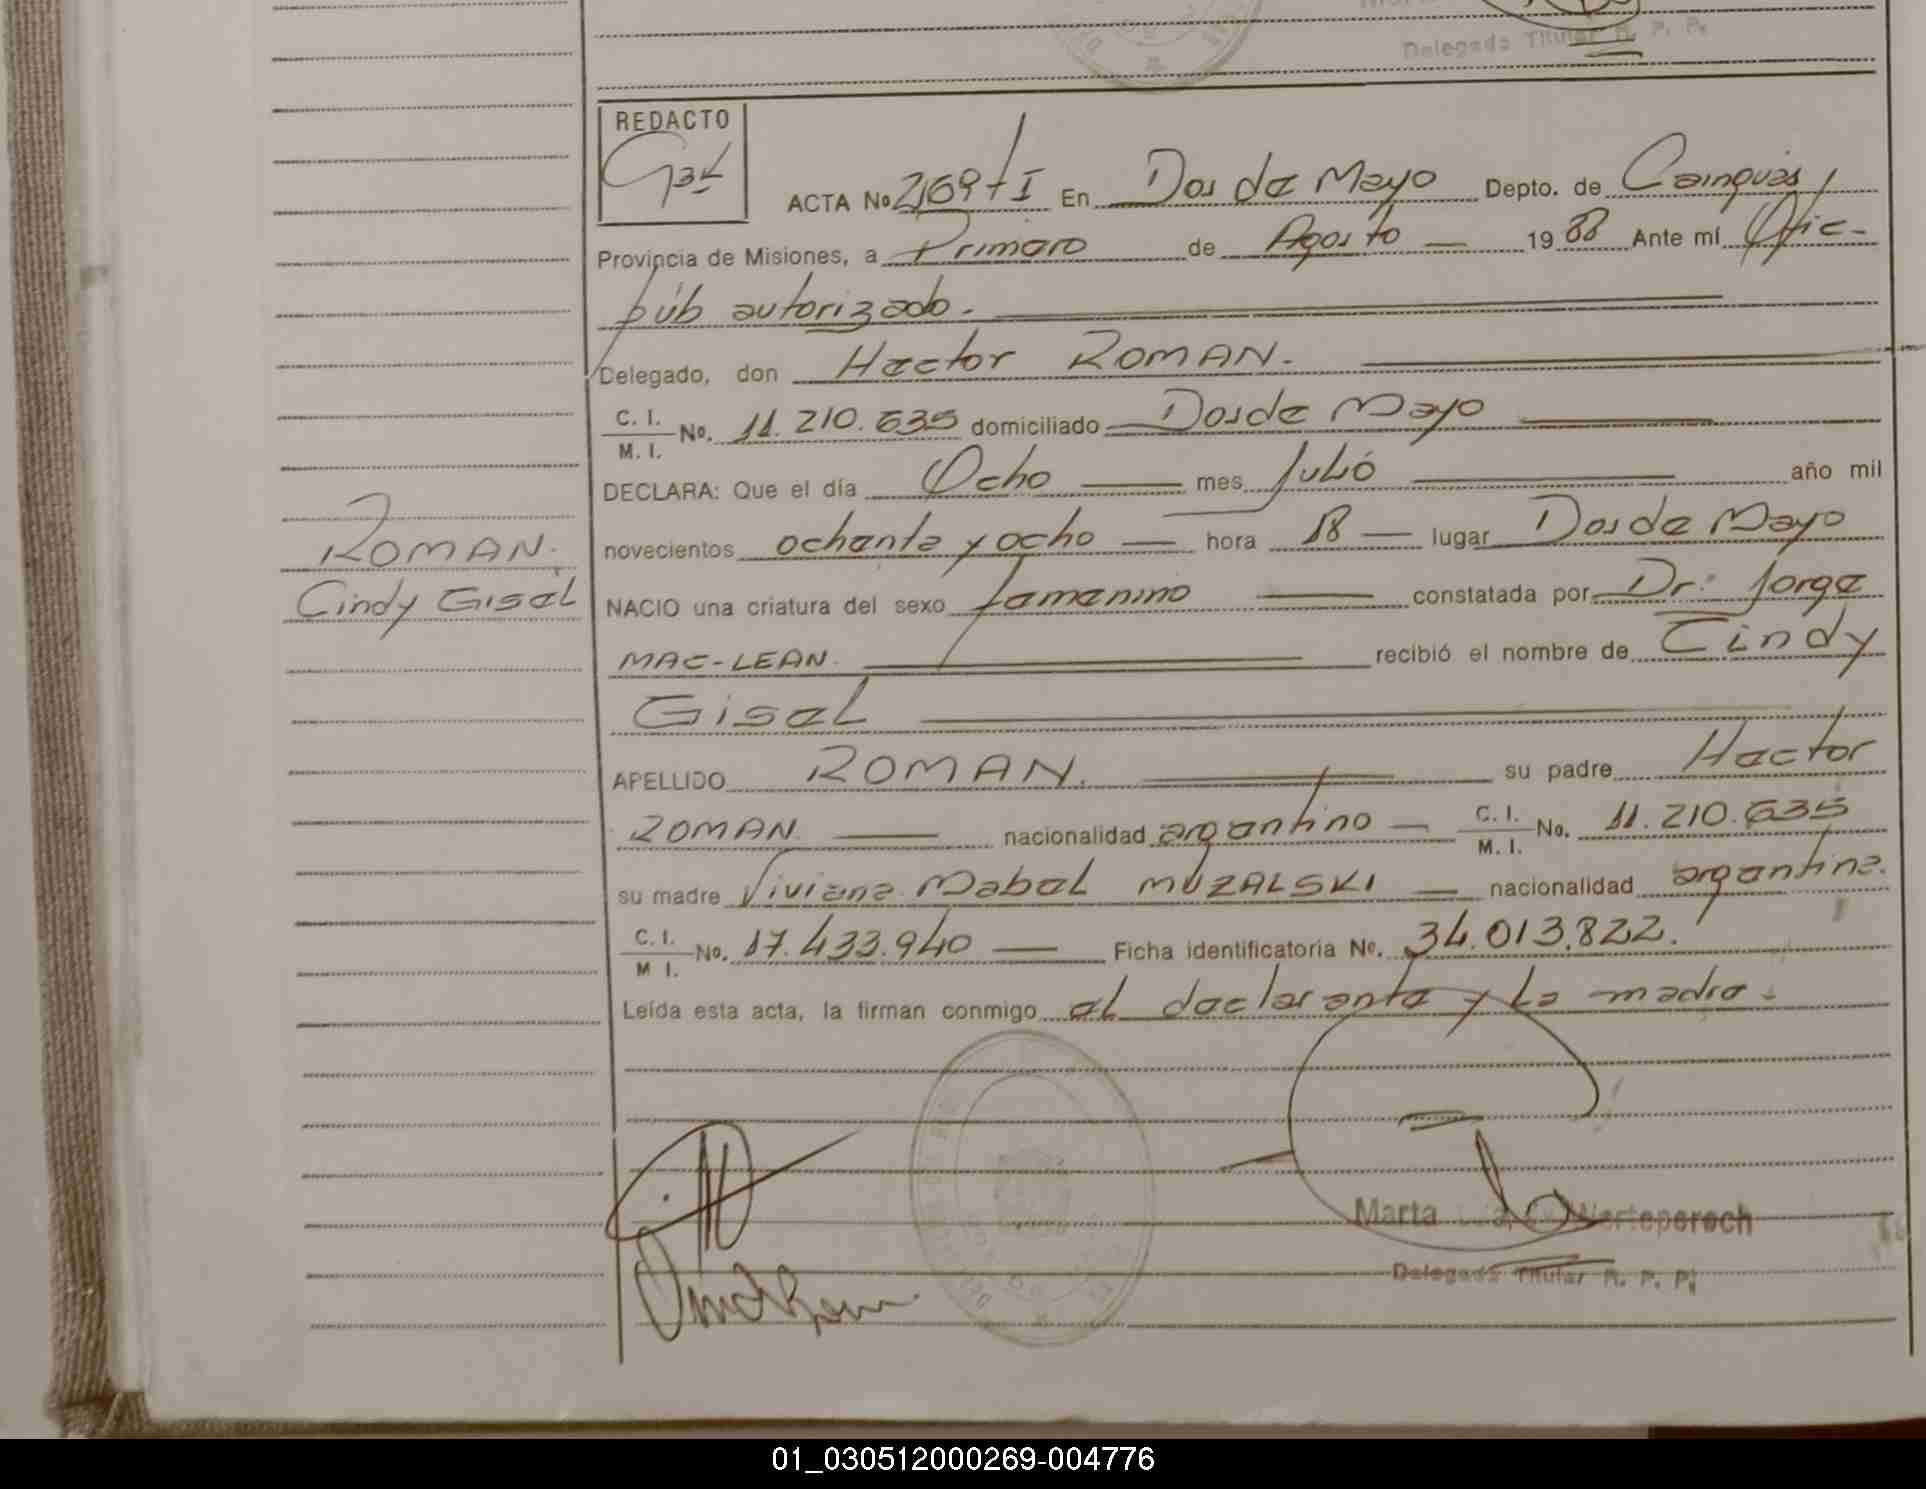 Delegada Titular R. P. P.
REDACTO
ACTA No 269 t I En Dos de Mayo Depto. de Cainguás,
Provincia de Misiones, a Primero de Agosto 19 88 Ante mí Ofic-
púb autorizado.
Delegado, don Hector ROMAN.
C. I. / M. I. No. 11.210.635 domiciliado Dos de Mayo
DECLARA: Que el día Ocho mes Julio año mil
novecientos ochenta y ocho hora 18 lugar Dos de Mayo
NACIO una criatura del sexo femenino constatada por Dr: Jorge
MAC-LEAN. recibió el nombre de Cindy
Gisel
APELLIDO ROMAN. su padre Hector
ROMAN. nacionalidad argentino C. I. / M. I. No. 11.210.635
su madre Viviana Mabel MUZALSKI nacionalidad argentina.
C. I. / M I. No. 17.433.940 Ficha identificatoria No. 34.013.822.
Leída esta acta, la firman conmigo el declarante y la madre.
ROMAN.
Cindy Gisel
Marta Werteperoch
Delegada Titular R. P. P.
01_030512000269-004776